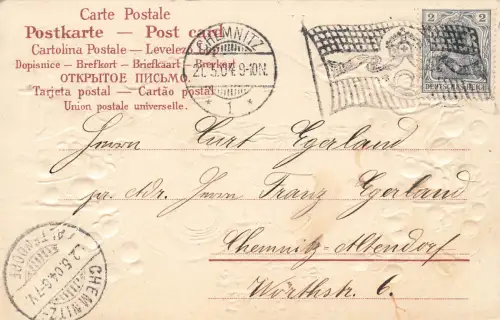 Carte Postale
Postkarte — Post card
Cartolina Postale — Levelez
Dopisnice — Brefkort — Briefkaart — Brevkort
ОТКРЫТОЕ ПИСЬМО.
Tarjeta postal — Cartão postal
Union postale universelle.
CHEMNITZ
21.5.04. 9-10N.
* 1 *
2
2
DEUTSCHES REICH
Herrn Curt Egerland
pr. Adr. Herrn Franz Egerland
Chemnitz-Altendorf
Wörthstr. 6.
CHEMNITZ
ALTENDORF